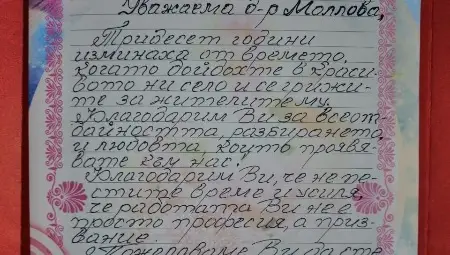 Уважаема д-р Моллова,
Тридесет години
изминаха от времето,
когато дойдохте в краси-
вото ни село и се грижи-
те за жителите му.
Благодарим Ви за всеот-
дайността, разбирането
и любовта, които прояв-
вате към нас!
Благодарим Ви, че не пе-
стите време и усилия,
че работата Ви не е
просто професия, а приз-
вание.
Пожелаваме Ви да сте